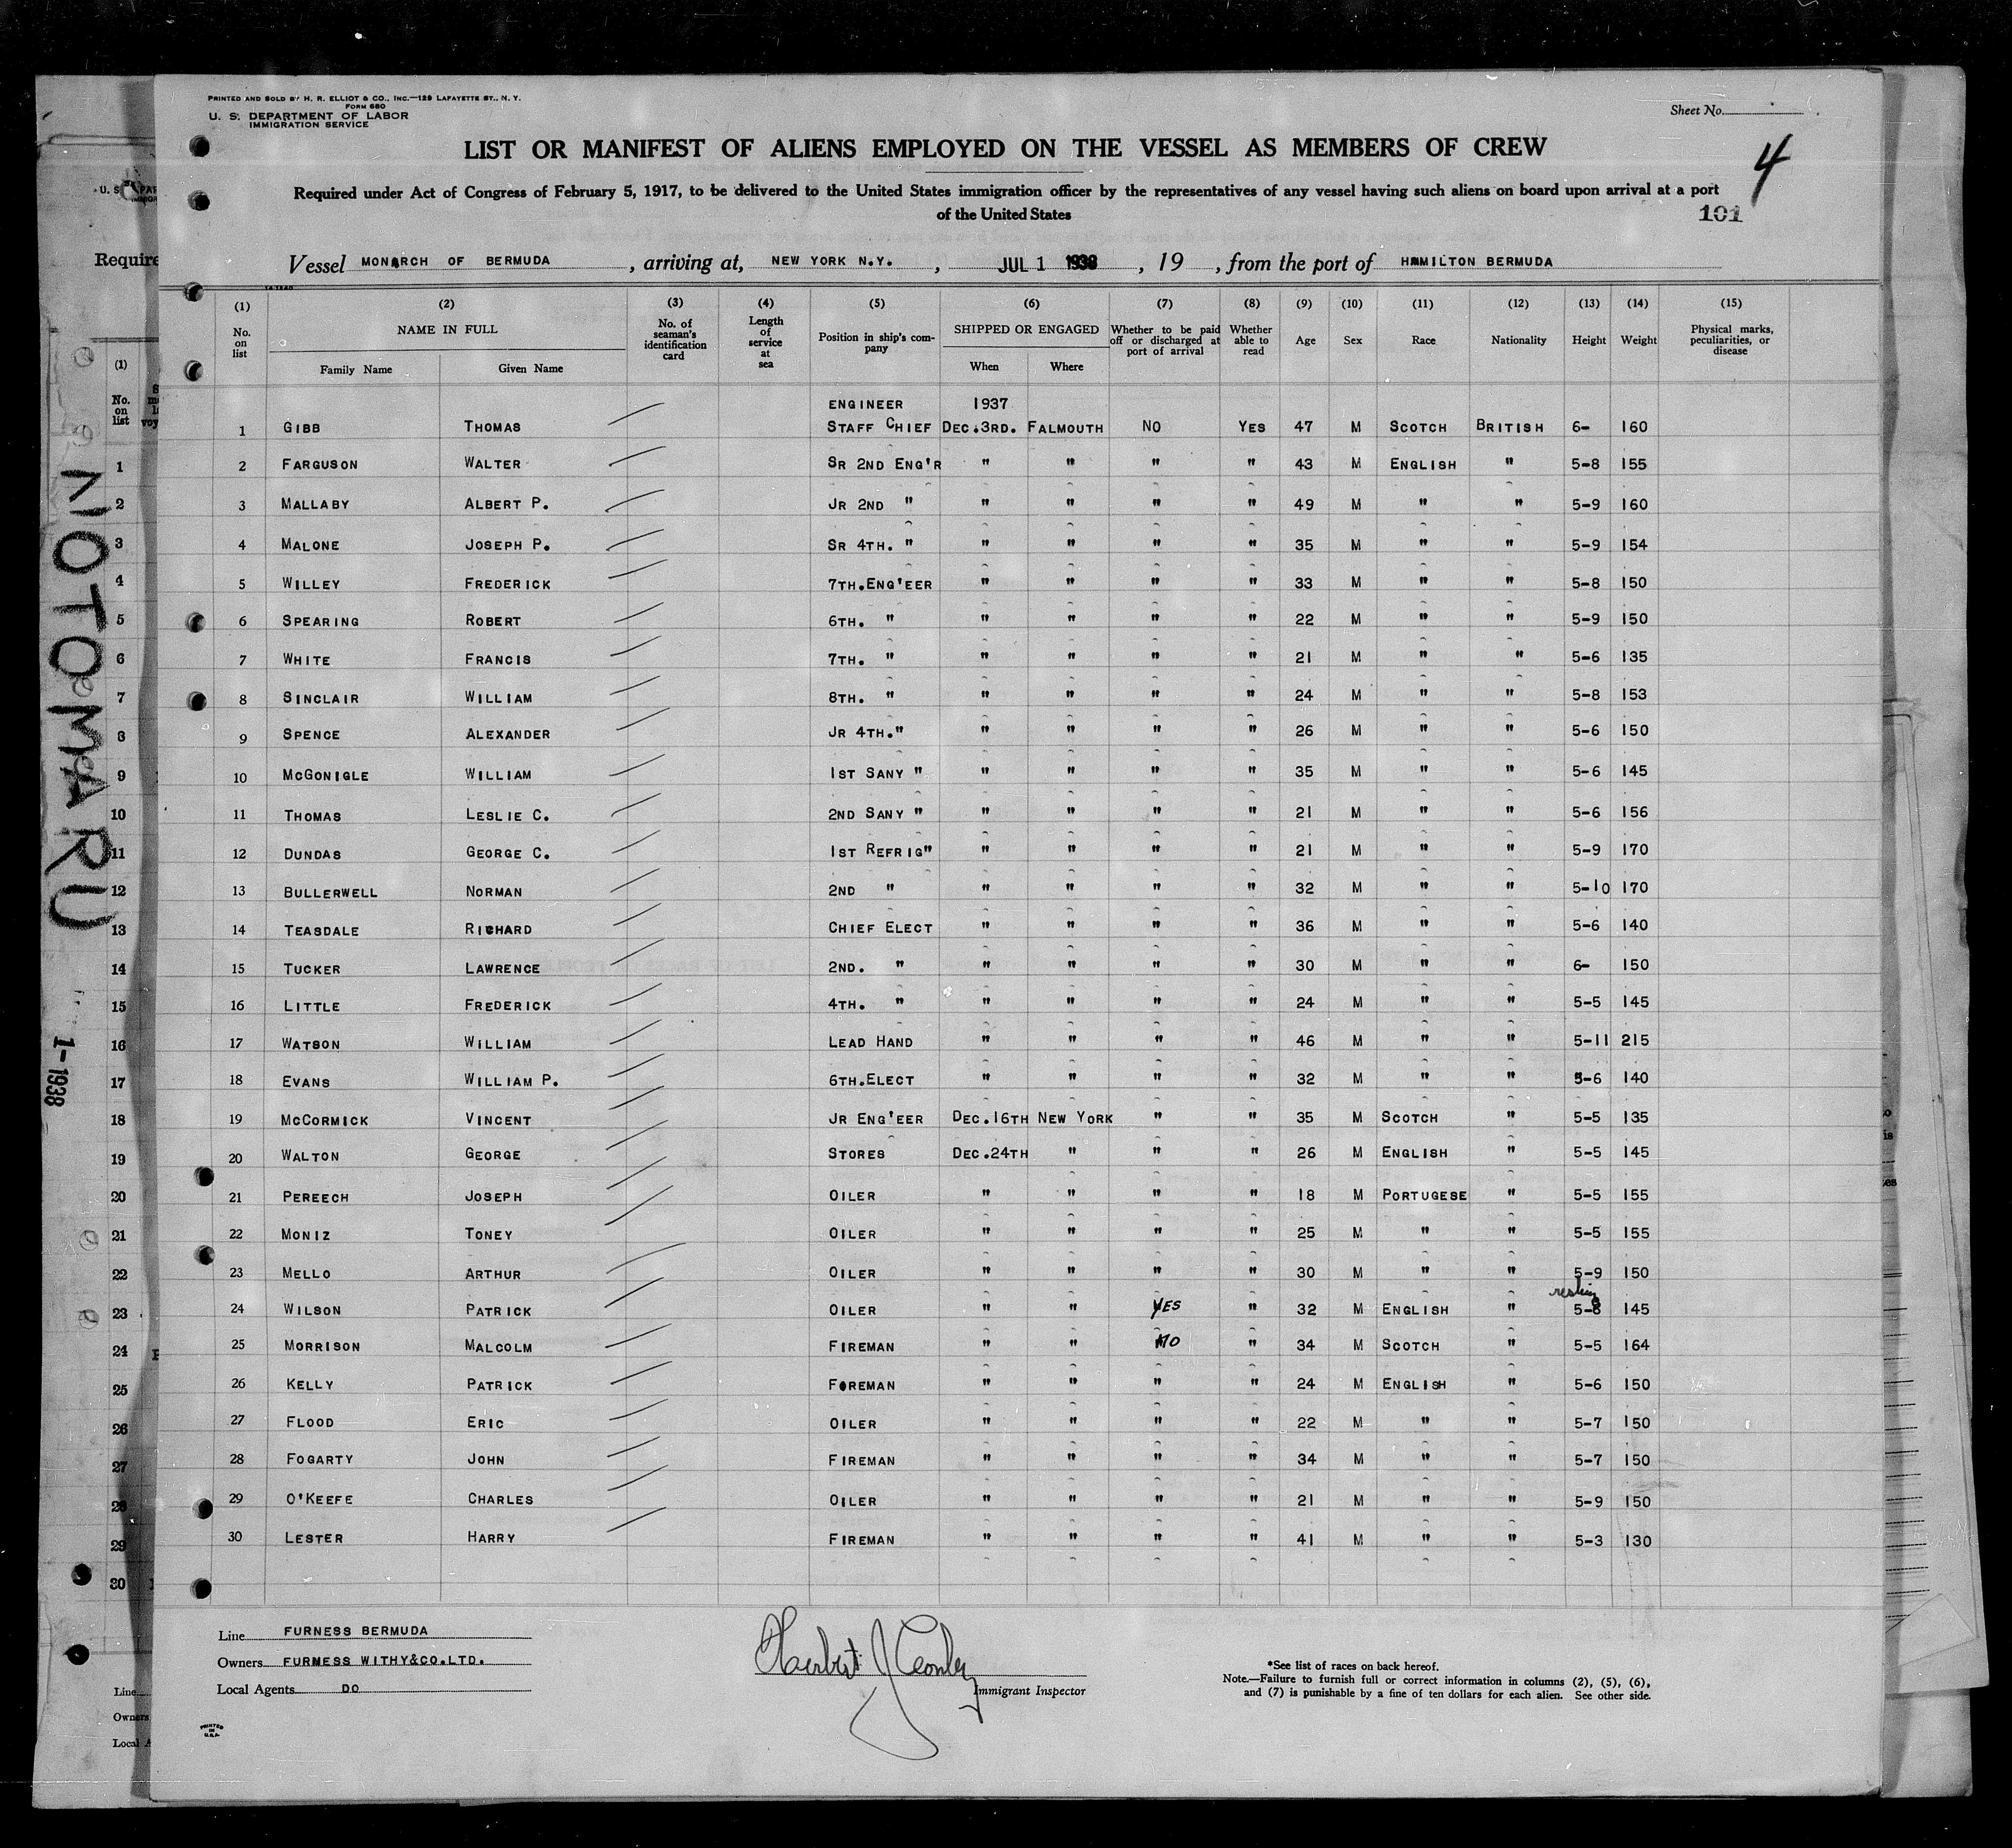 PRINTED AND SOLD BY H. R. ELLIOT & CO., INC.—129 LAFAYETTE ST., N. Y.
FORM 680
U. S. DEPARTMENT OF LABOR
IMMIGRATION SERVICE
Sheet No.
LIST OR MANIFEST OF ALIENS EMPLOYED ON THE VESSEL AS MEMBERS OF CREW
4
Required under Act of Congress of February 5, 1917, to be delivered to the United States immigration officer by the representatives of any vessel having such aliens on board upon arrival at a port
of the United States
101
Vessel MONARCH OF BERMUDA, arriving at, NEW YORK N.Y., JUL 1 1938, 19 , from the port of HAMILTON BERMUDA
(1) (2) (3) (4) (5) (6) (7) (8) (9) (10) (11) (12) (13) (14) (15)
No. on list NAME IN FULL Family Name Given Name No. of seaman's identification card Length of service at sea Position in ship's company SHIPPED OR ENGAGED When Where Whether to be paid off or discharged at port of arrival Whether able to read Age Sex Race Nationality Height Weight Physical marks, peculiarities, or disease
ENGINEER 1937
1 GIBB THOMAS STAFF CHIEF DEC.3RD. FALMOUTH NO YES 47 M SCOTCH BRITISH 6- 160
2 FARGUSON WALTER SR 2ND ENG'R " " " " 43 M ENGLISH " 5-8 155
3 MALLABY ALBERT P. JR 2ND " " " " " 49 M " " 5-9 160
4 MALONE JOSEPH P. SR 4TH. " " " " " 35 M " " 5-9 154
5 WILLEY FREDERICK 7TH.ENG'EER " " " " 33 M " " 5-8 150
6 SPEARING ROBERT 6TH. " " " " " 22 M " " 5-9 150
7 WHITE FRANCIS 7TH. " " " " " 21 M " " 5-6 135
8 SINCLAIR WILLIAM 8TH. " " " " " 24 M " " 5-8 153
9 SPENCE ALEXANDER JR 4TH." " " " " 26 M " " 5-6 150
10 MCGONIGLE WILLIAM 1ST SANY " " " " " 35 M " " 5-6 145
11 THOMAS LESLIE C. 2ND SANY " " " " " 21 M " " 5-6 156
12 DUNDAS GEORGE C. 1ST REFRIG" " " " " 21 M " " 5-9 170
13 BULLERWELL NORMAN 2ND " " " " " 32 M " " 5-10 170
14 TEASDALE RICHARD CHIEF ELECT " " " " 36 M " " 5-6 140
15 TUCKER LAWRENCE 2ND. " " " " " 30 M " " 6- 150
16 LITTLE FREDERICK 4TH. " " " " " 24 M " " 5-5 145
17 WATSON WILLIAM LEAD HAND " " " " 46 M " " 5-11 215
18 EVANS WILLIAM P. 6TH.ELECT " " " " 32 M " " 5-6 140
19 MCCORMICK VINCENT JR ENG'EER DEC.16TH NEW YORK " " 35 M SCOTCH " 5-5 135
20 WALTON GEORGE STORES DEC.24TH " " " 26 M ENGLISH " 5-5 145
21 PEREECH JOSEPH OILER " " " " 18 M PORTUGESE " 5-5 155
22 MONIZ TONEY OILER " " " " 25 M " " 5-5 155
23 MELLO ARTHUR OILER " " " " 30 M " " 5-9 150
24 WILSON PATRICK OILER " " YES " 32 M ENGLISH " 5-8 145
25 MORRISON MALCOLM FIREMAN " " NO " 34 M SCOTCH " 5-5 164
26 KELLY PATRICK FOREMAN " " " " 24 M ENGLISH " 5-6 150
27 FLOOD ERIC OILER " " " " 22 M " " 5-7 150
28 FOGARTY JOHN FIREMAN " " " " 34 M " " 5-7 150
29 O'KEEFE CHARLES OILER " " " " 21 M " " 5-9 150
30 LESTER HARRY FIREMAN " " " " 41 M " " 5-3 130
Line FURNESS BERMUDA
Owners FURMESS WITHY&CO.LTD.
Local Agents DO
Immigrant Inspector
*See list of races on back hereof.
Note.—Failure to furnish full or correct information in columns (2), (5), (6),
and (7) is punishable by a fine of ten dollars for each alien. See other side.
PRINTED
IN
U.S.A.
U. S.
Require
(1)
No.
on
list
1
2
3
4
5
6
7
8
9
10
11
12
13
14
15
16
17
18
19
20
21
22
23
24
25
26
27
28
29
30
Line
Owners
Local A
MARU
1-1938